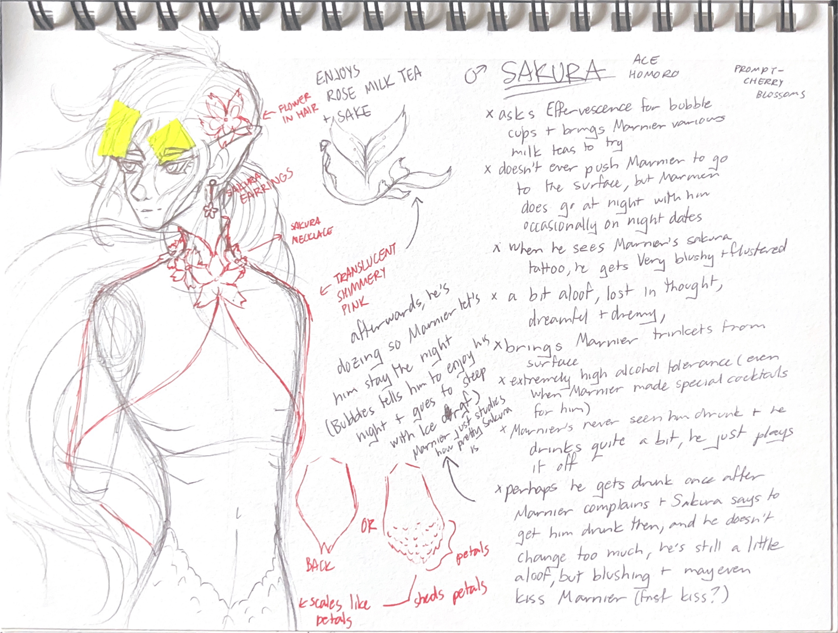 ENJOYS
ROSE MILK TEA
+ SAKE
← FLOWER
IN HAIR
SAKURA
EARRINGS
SAKURA
NECKLACE
← TRANSLUCENT
SHIMMERY
PINK
afterwards, he's
dozing so Marnier let's
him stay the night
(Bubbles tells him to enjoy his
night + goes to sleep
with Ice
Marnier just studies
how pretty Sakura
is
BACK
OR
petals
← scales like
petals
sheds petals
♂ SAKURA
ACE
HOMORO
PROMPT-
CHERRY
BLOSSOMS
x asks Effervescence for bubble
cups + brings Marnier various
milk teas to try
x doesn't ever push Marnier to go
to the surface, but Marnier
does go at night with him
occasionally on night dates
x when he sees Marnier's sakura
tattoo, he gets very blushy + flustered
x a bit aloof, lost in thought,
dreamful + dreamy,
x brings Marnier trinkets from
surface
x extremely high alcohol tolerance (even
when Marnier made special cocktails
for him)
x Marnier's never seen him drunk + he
drinks quite a bit, he just plays
it off
x perhaps he gets drunk once after
Marnier complains + Sakura says to
get him drunk then, and he doesn't
change too much, he's still a little
aloof, but blushing + may even
kiss Marnier (first kiss?)